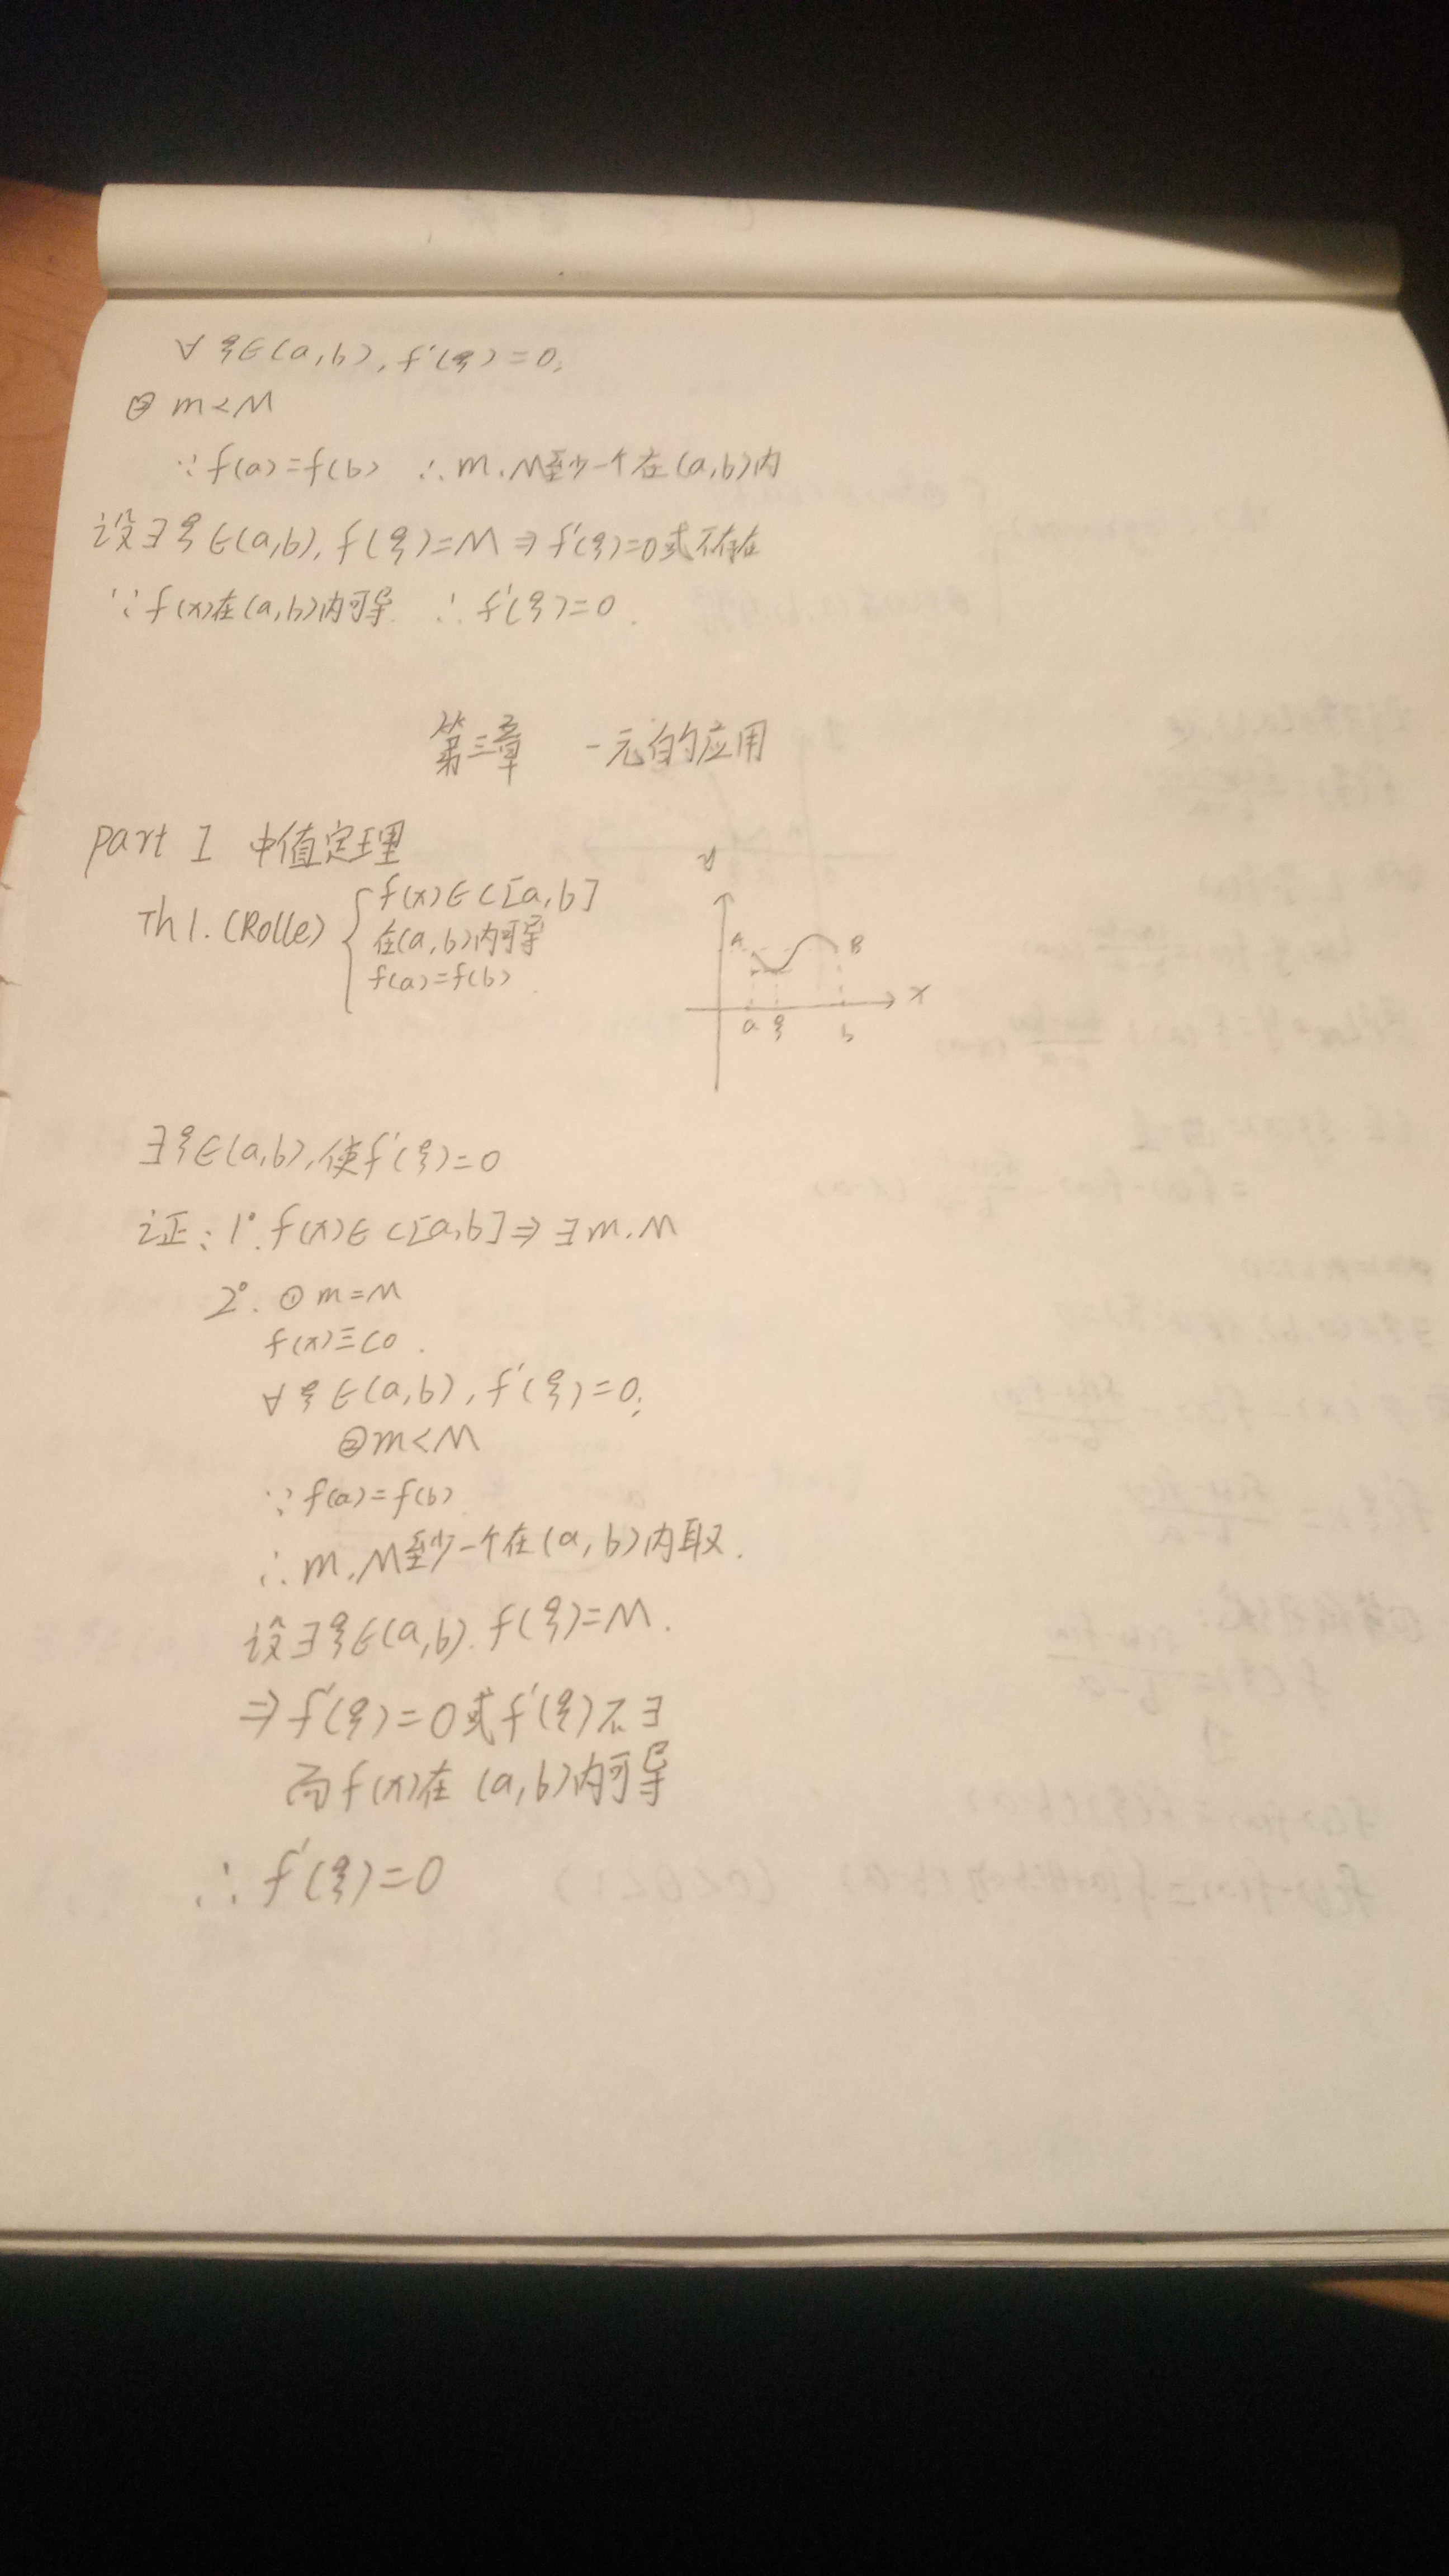 ∀ ξ∈(a,b), f'(ξ)=0;
② m<M
∵ f(a)=f(b) ∴ m.M至少一个在(a,b)内
设∃ξ∈(a,b), f(ξ)=M ⇒ f'(ξ)=0或不存在
∵ f(x)在(a,b)内可导. ∴ f'(ξ)=0.
第三章 一元的应用
part I 中值定理
Th1. (Rolle) { f(x)∈C[a,b]
在(a,b)内可导
f(a)=f(b)
y
A B
x
a ξ b
∃ξ∈(a,b), 使f'(ξ)=0
证: 1°. f(x)∈C[a,b] ⇒ ∃m.M
2°. ① m=M
f(x)≡C0.
∀ξ∈(a,b), f'(ξ)=0;
② m<M
∵ f(a)=f(b)
∴ m.M至少一个在(a,b)内取.
设∃ξ∈(a,b). f(ξ)=M.
⇒ f'(ξ)=0或f'(ξ)不∃
而f(x)在(a,b)内可导
∴ f'(ξ)=0